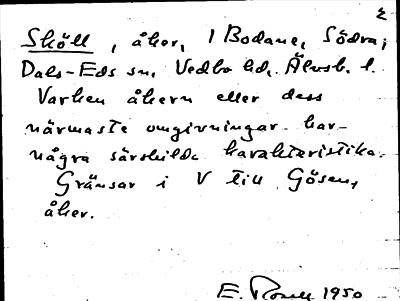 Sköll, åker, 1 Bodane, Södra;
Dals-Eds sn, Vedbo hd, Älvsb. l.
Varken åkern eller dess
närmaste omgivningar har
några särskilda karakteristika.
Gränsar i V till Gösen,
åker.
E. 1950